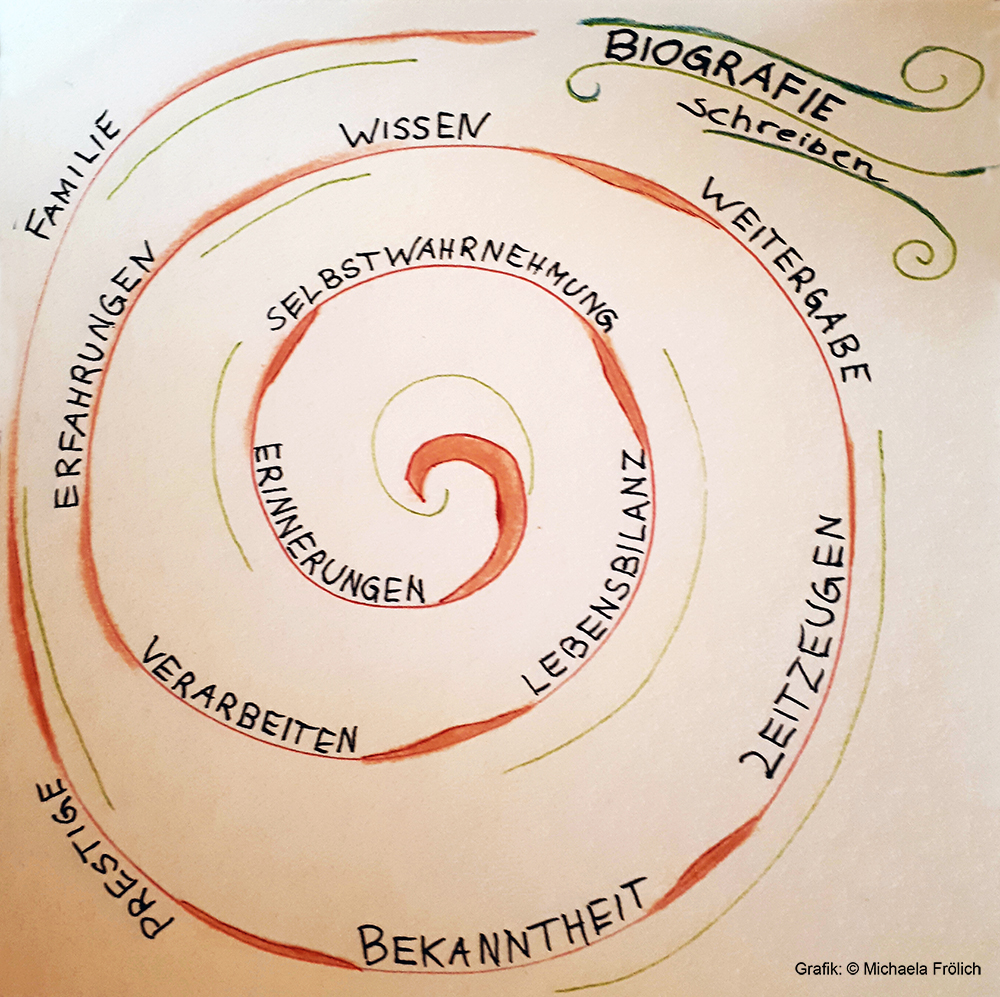 BIOGRAFIE
schreiben
ERINNERUNGEN
SELBSTWAHRNEHMUNG
LEBENSBILANZ
VERARBEITEN
ERFAHRUNGEN
WISSEN
WEITERGABE
ZEITZEUGEN
BEKANNTHEIT
PRESTIGE
FAMILIE
Grafik: © Michaela Frölich